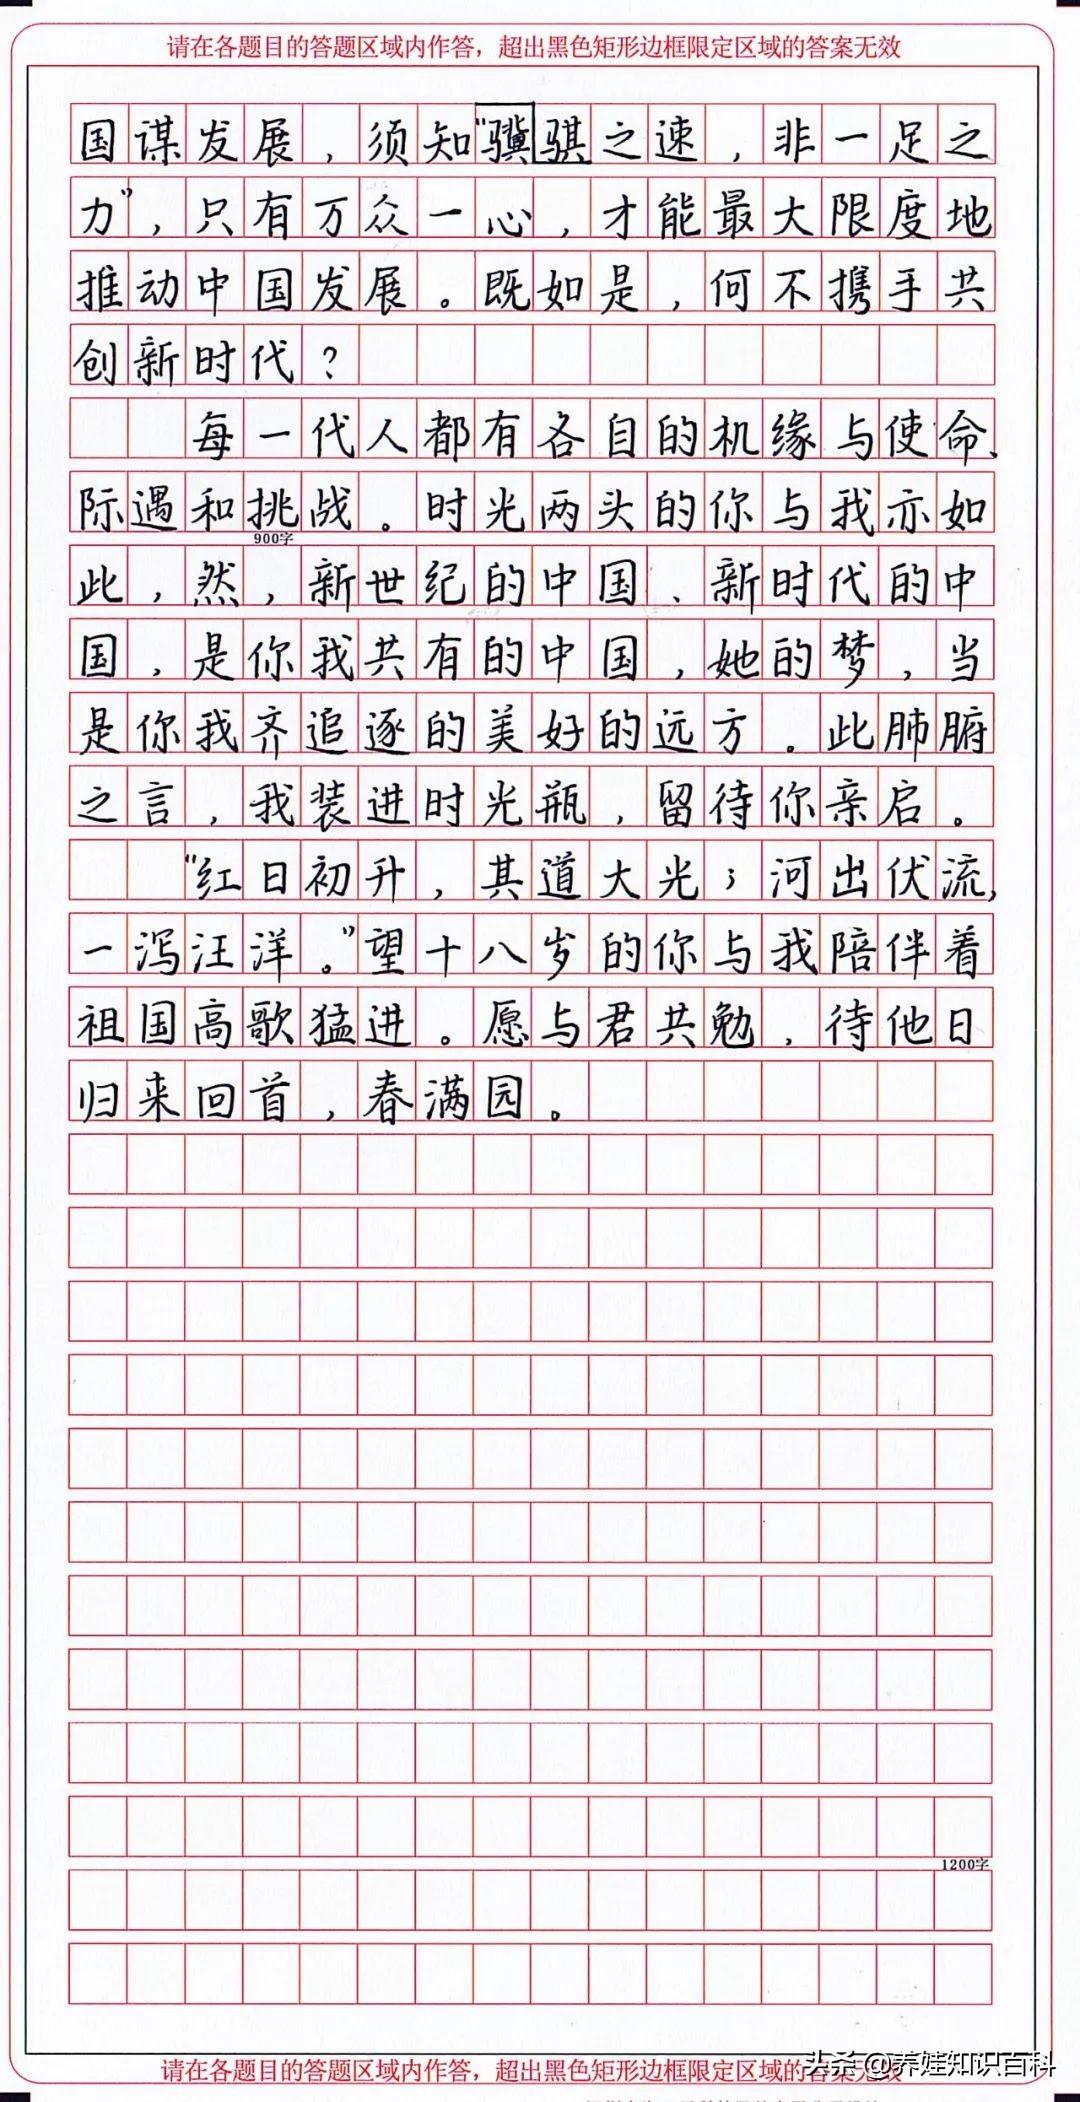 请在各题目的答题区域内作答，超出黑色矩形边框限定区域的答案无效
国谋发展，须知“骥骐之速，非一足之
力”，只有万众一心，才能最大限度地
推动中国发展。既如是，何不携手共
创新时代？
每一代人都有各自的机缘与使命、
际遇和挑战。时光两头的你与我亦如
900字
此，然，新世纪的中国、新时代的中
国，是你我共有的中国，她的梦，当
是你我齐追逐的美好的远方。此肺腑
之言，我装进时光瓶，留待你亲启。
“红日初升，其道大光；河出伏流，
一泻汪洋。”望十八岁的你与我陪伴着
祖国高歌猛进。愿与君共勉，待他日
归来回首，春满园。
1200字
请在各题目的答题区域内作答，超出黑色矩形边框限定区域的答案无效
头条 @养娃知识百科